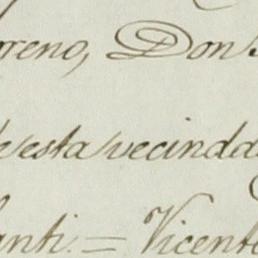 oreno, Don
de esta vecinda
anti. = Vicent